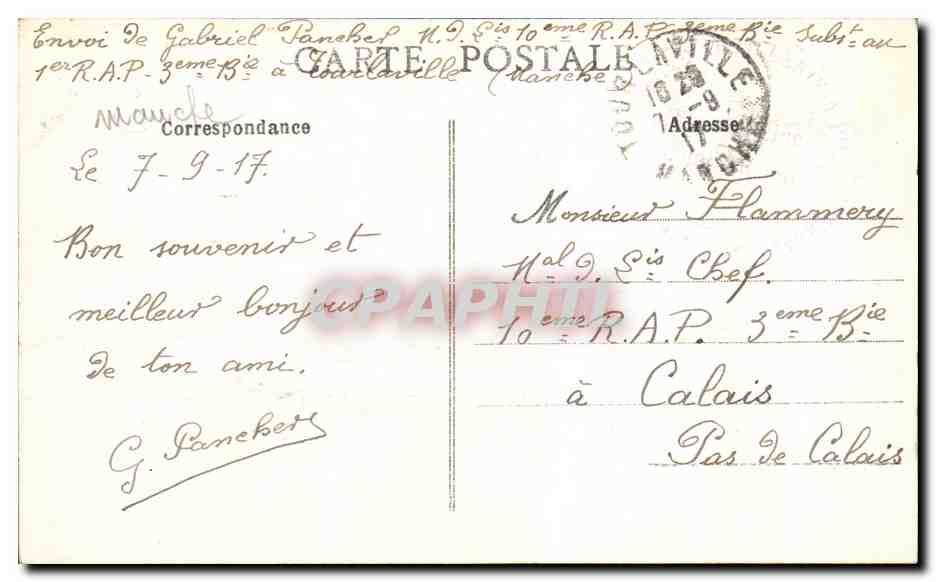 Envoi de Gabriel Pancher M.d. Lis 10eme R.A.P. 3eme Bie Subst. au
1er R.A.P. 3eme Bie à Tourlaville (Manche)
CARTE POSTALE
TOURLAVILLE
10 20
7 -9
17
MANCHE
manche
Correspondance
Adresse
Le 7-9-17.
Bon souvenir et
meilleur bonjour
de ton ami.
G. Pancher
Monsieur Flammery
Mal d. Lis Chef.
10eme R.A.P. 3eme Bie
à Calais
Pas de Calais
CPAPHTI